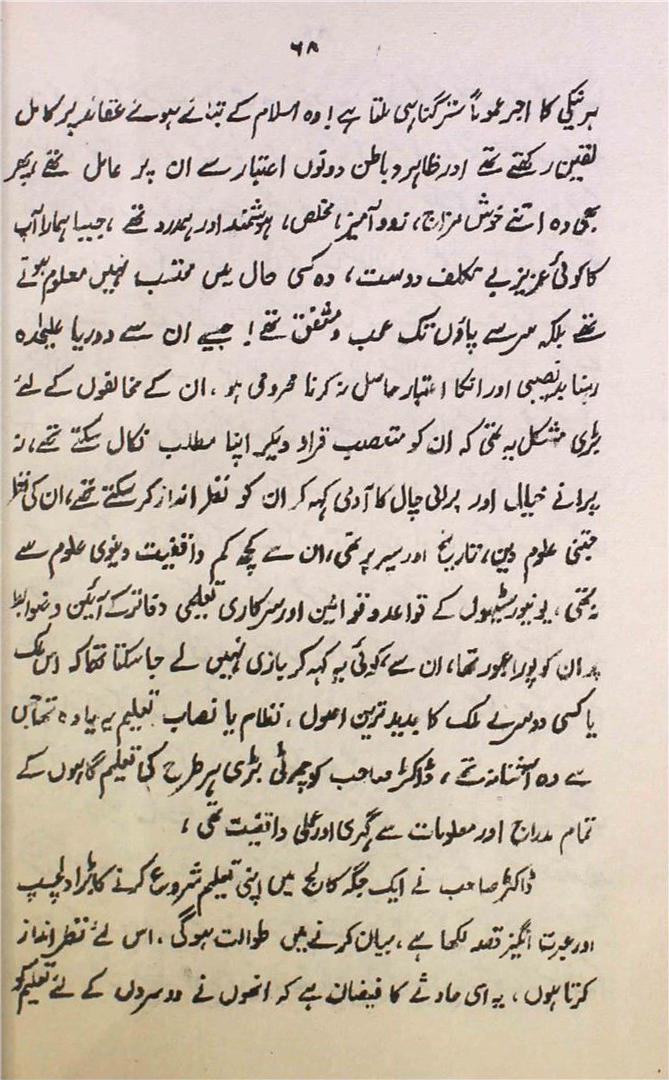 ۶۸
ہر نیکی کا اجر عموماً ستر گنا ہی ملتا ہے! وہ اسلام کے بتائے ہوئے عقائد پر کامل
یقین رکھتے تھے اور ظاہر و باطن دونوں اعتبار سے ان پر عامل تھے، پھر
بھی وہ اتنے خوش مزاج، زود آمیز، مخلص، ہوشمند اور ہمدرد تھے، جیسا ہمارا آپ
کا کوئی عزیز بے تکلف دوست، وہ کسی حال میں محتسب نہیں معلوم ہوتے
تھے بلکہ سر سے پاؤں تک محب و مشفق تھے! جیسے ان سے دور یا علیحدہ
رہنا بدنصیبی اور انکا اعتبار حاصل نہ کرنا محرومی ہو، ان کے مخالفوں کے لئے
بڑی مشکل یہ تھی کہ ان کو متعصب قرار دیکر اپنا مطلب نکال سکتے تھے، نہ
پرانے خیال اور پرانی چال کا آدمی کہہ کر ان کو نظر انداز کر سکتے تھے، ان کی نظر
جتنی علوم دین، تاریخ اور سیر پر تھی، ان سے کچھ کم واقفیت دنیوی علوم سے
نہ تھی، یونیورسٹیوں کے قواعد و قوانین اور سرکاری تعلیمی دفاتر کے آئین و ضوابط
پر ان کو پورا عبور تھا، ان سے، کوئی یہ کہہ کر بازی نہیں لے جا سکتا تھا کہ اس ملک
یا کسی دوسرے ملک کا جدید ترین اصول، نظام یا نصاب تعلیم یہ یا وہ تھا جس
سے وہ آشنا نہ تھے، ڈاکٹر صاحب کو چھوٹی بڑی ہر طرح کی تعلیم گاہوں کے
تمام مدارج اور معلومات سے گہری اور عملی واقفیت تھی،
ڈاکٹر صاحب نے ایک جگہ کالج میں اپنی تعلیم شروع کرنے کا بڑا دلچسپ
اور عبرت انگیز قصہ لکھا ہے، بیان کرنے میں طوالت ہوگی، اس لئے نظر انداز
کرتا ہوں، یہ اسی حادثے کا فیضان ہے کہ انھوں نے دوسروں کے لئے تعلیم کو